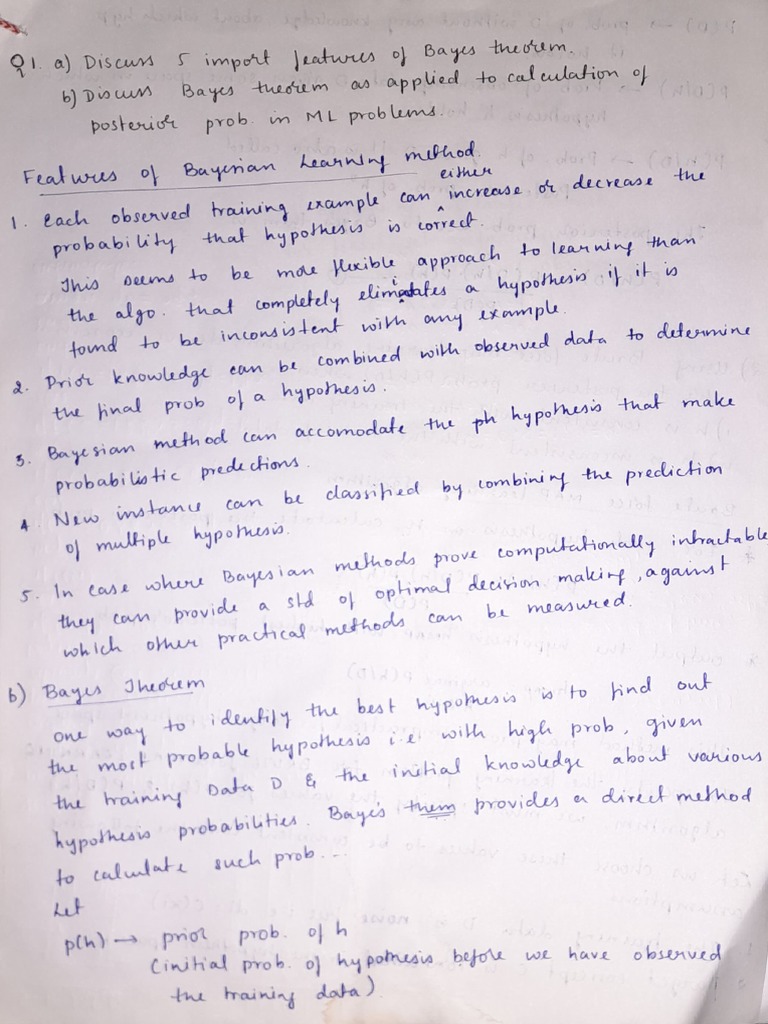 Q1. a) Discuss 5 import features of Bayes theorem.
b) Discuss Bayes theorem as applied to calculation of
posterior prob. in ML problems.
Features of Bayesian Learning method.
1. Each observed training example can either increase or decrease the
probability that hypothesis is correct.
This seems to be more flexible approach to learning than
the algo. that completely eliminates a hypothesis if it is
found to be inconsistent with any example.
2. Prior knowledge can be combined with observed data to determine
the final prob of a hypothesis.
3. Bayesian method can accomodate the ph hypothesis that make
probabilistic predections.
4. New instance can be classified by combining the prediction
of multiple hypothesis.
5. In case where Bayesian methods prove computationally intractable
they can provide a std of optimal decision making, against
which other practical methods can be measured.
b) Bayes Theorem
one way to identify the best hypothesis is to find out
the most probable hypothesis i.e. with high prob, given
the training Data D & the initial knowledge about various
hypothesis probabilities. Baye's them provides a direct method
to calculate such prob...
Let
p(h) → prior prob. of h
(initial prob. of hypothesis before we have observed
the training data)